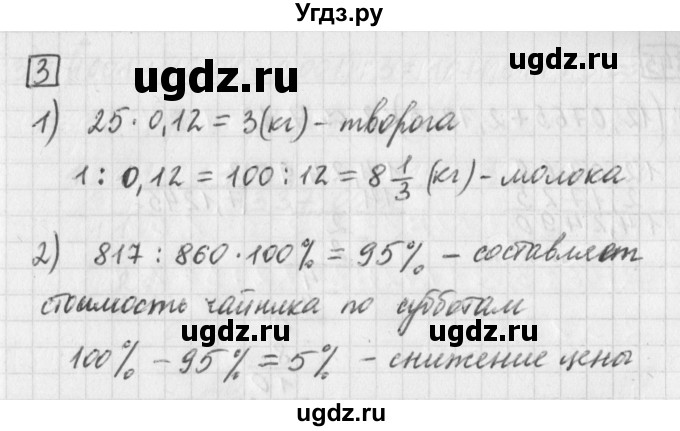 Угдз.ру
3
ugdz.ru
ugdz.ru
1) 25 · 0,12 = 3 (кг) – творога
1 : 0,12 = 100 : 12 = 8 1/3 (кг) – молока
ugdz.ru
2) 817 : 860 · 100% = 95% – составляет
стоимость чайника по субботам
ugdz.ru
ugdz.ru
100% – 95% = 5% – снижение цены
ugdz.ru